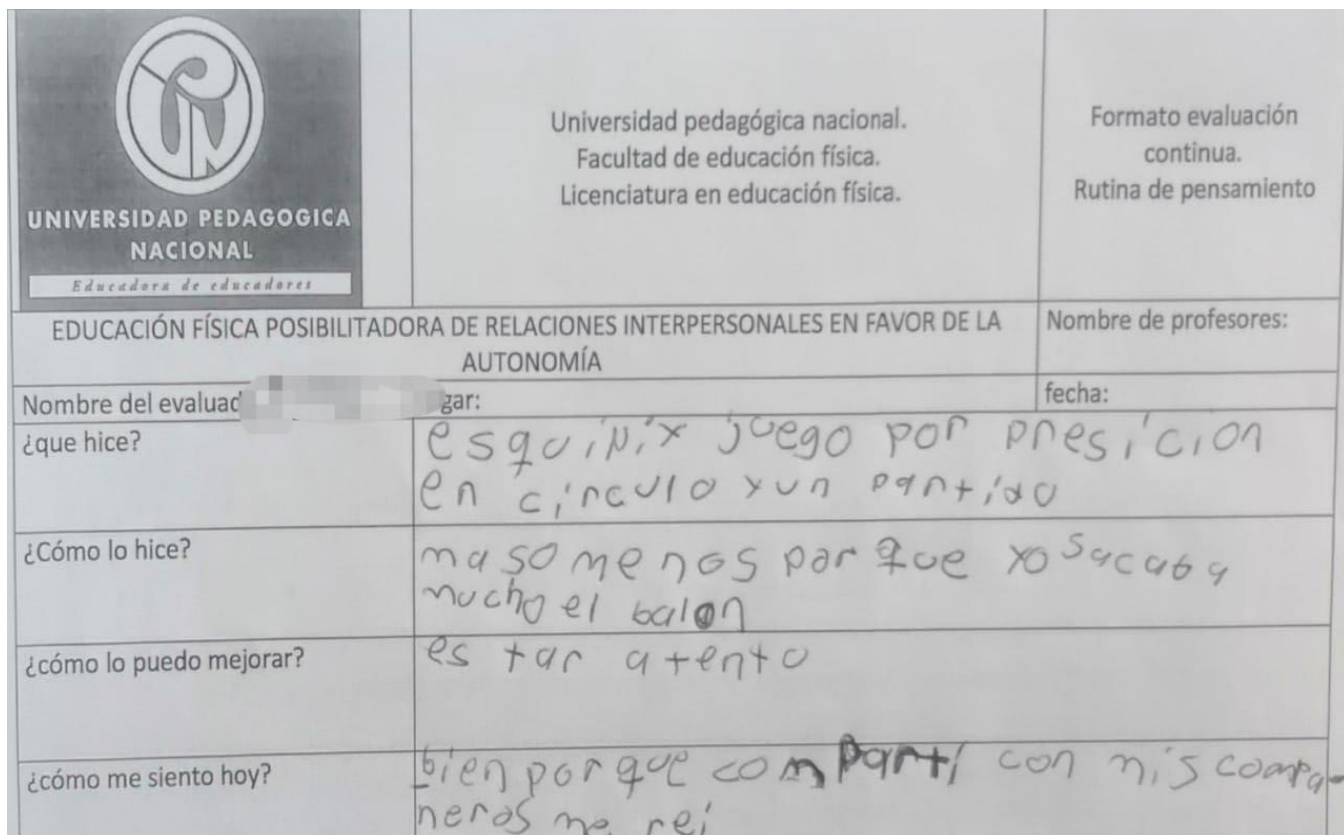 UNIVERSIDAD PEDAGOGICA
NACIONAL
Educadora de educadores
Universidad pedagógica nacional.
Facultad de educación física.
Licenciatura en educación física.
Formato evaluación
continua.
Rutina de pensamiento
EDUCACIÓN FÍSICA POSIBILITADORA DE RELACIONES INTERPERSONALES EN FAVOR DE LA
AUTONOMÍA
Nombre de profesores:
Nombre del evaluad gar:
fecha:
¿que hice?
juego por presicion
en circulo y un partido
¿Cómo lo hice?
masomenos por que yo sacaba
mucho el balon
¿cómo lo puedo mejorar?
es tar atento
¿cómo me siento hoy?
bien por que comparti con mis compa-
neros me rei